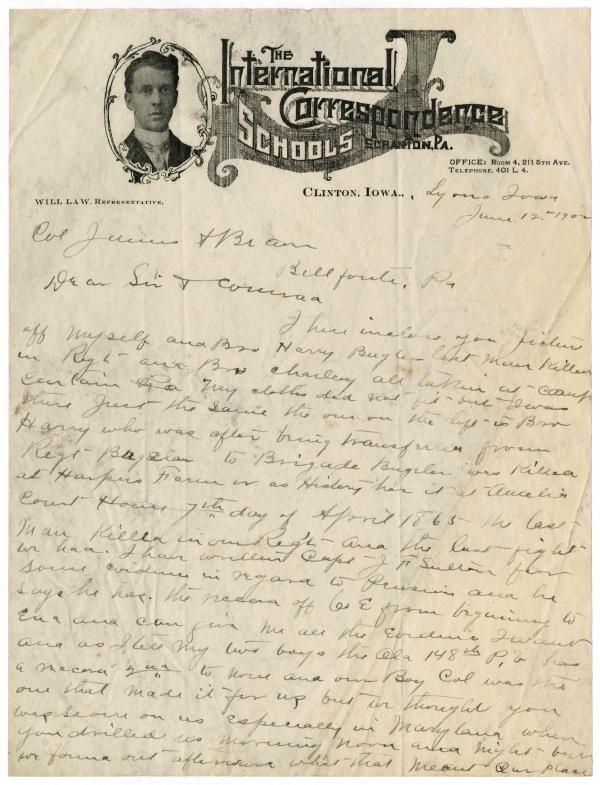 The
International
Correspondence
Schools
Scranton, Pa.
Office: Room 4, 211 5th Ave.
Telephone, 401 L 4.
Will Law, Representative.
Clinton, Iowa., Lyons Iowa
June 12th 190
Col James Beaver
Bellfonte, Pa
Dear Sir &
I here inclose you picture
off Myself and Bro Harry Bugler last Man Killed
in Regt and Bro charley all taken at camp
curtain Pa My clothes did not fit but I was
there Just the same the one on the left is Bro
Harry who was after being transferred from
Regt Bugler to Brigade Bugler was Killed
at Harpers Farm or as History has it at Amelia
Court House 7th day of April 1865 the last
Man Killed in our Regt and the last fight
we had. I have written Capt J F Sutton for
some evidence in regard to Pension and he
says he has the record off Co E from beginning to
End and can give me all the Evidence I want
and as I tell My two boys the Old 148th P, V has
a record 2nd to none and our Boy Col was the
one that made it for us but we thought you
was severe on us Especially in Maryland when
you drilled us morning noon and night but
we found out afterward what that meant Our place